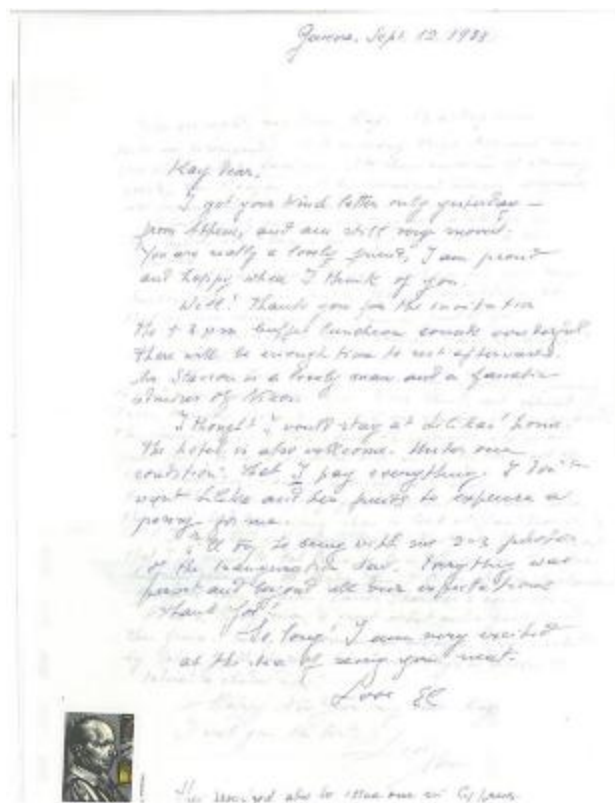 Geneva, Sept 12. 1988
Kay dear,
I got your kind letter only yesterday —
from Athens, and am still very moved.
You are really a lovely friend, I am proud
and happy when I think of you.
Well! Thank you for the invitation
The + 3 pm buffet luncheon sounds wonderful.
There will be enough time to rest afterwards.
is a lovely man and a fanatic
admirer of
I thought I would stay at home.
The hotel is also wellcome. Under one
condition: that I pay everything. I don't
want and her to expense a
penny for me.
I'll try to bring with me 2-3 photos
of the inauguration day. Everything was
and beyond all our expectations
Thank God!
So long! I am very excited
at the idea of seeing you next.
Love
also to in Cyprus